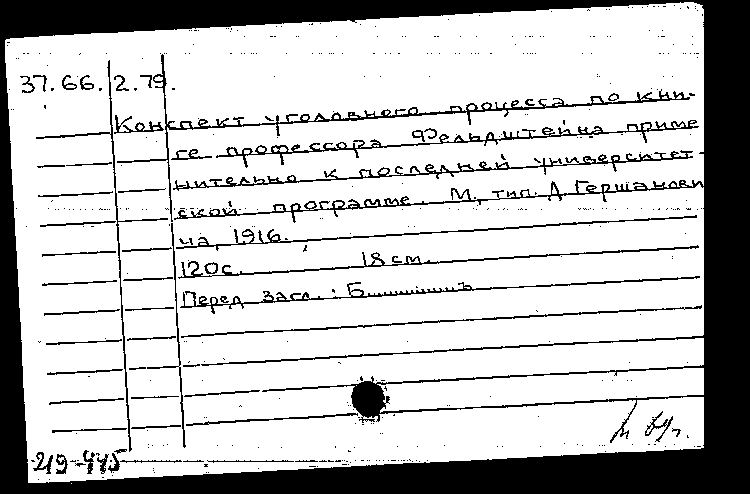 37.66.2.79.
Конспект уголовного процесса по кни-
ге профессора Фельдштейна приме
нительно к последней университет-
ской программе. М., тип. Д. Гершанови
ча, 1916.
120с. 18 см.
Перед загл.: Б............ъ
219-445